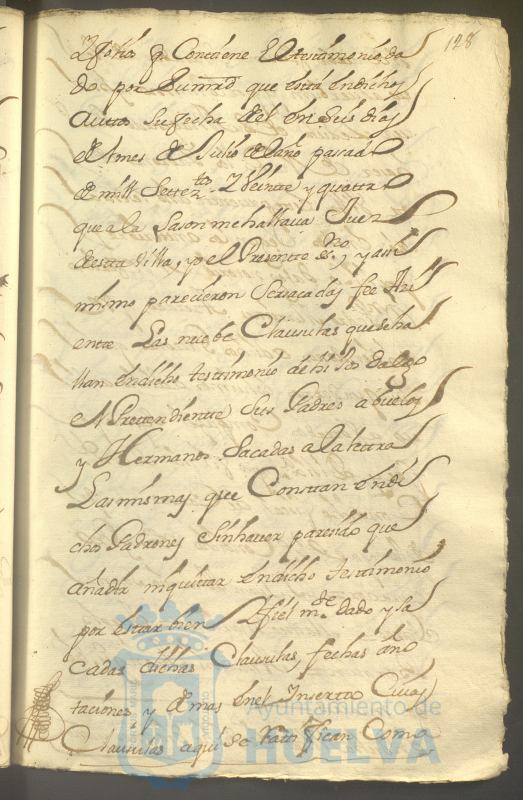 128
Zitorio q Contiene El testimonio da
do por Su mrd que está en dichos
Autos Su fecha del en Seis días
del mes de Julio del año pasado
de mill Settez.tos Y Veinte y quatro
que a la Sason me hallava Juez
de esta Villa, y el Presente ess.no y assi
mismo parecieron Sacadas fee
ente Las nuebe Clausulas que se ha
llan en dicho testimonio de hijos dalgo
el Pretendiente Sus Padres abuelos
y Hermanos Sacadas a la letra
Las mismas que Constan en di
chos Padrones Sin haver paresido que
añadir ni quittar en dicho testimonio
por estar bien y fielm.de dado y la
cadas dichas Clausulas, fechas áno
taciones y demas en el Inserto Cuias
Clausulas aqui Se Ratifican Como
Ayuntamiento de
HUELVA